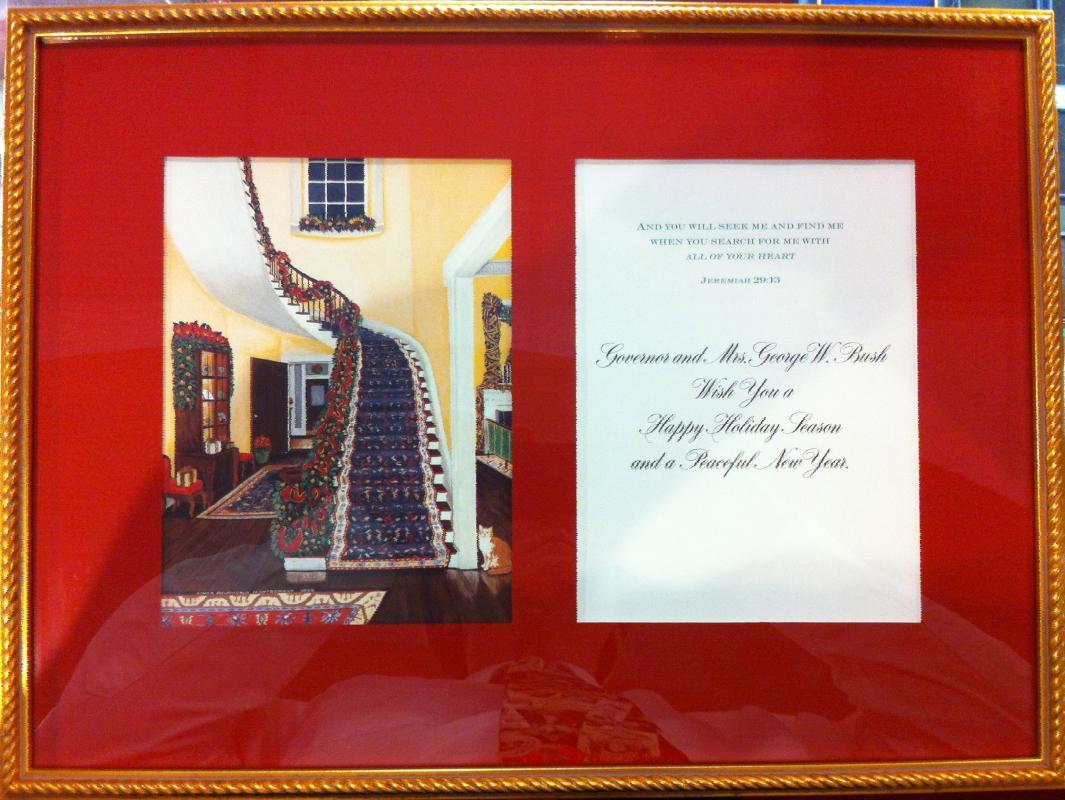 AND YOU WILL SEEK ME AND FIND ME
WHEN YOU SEARCH FOR ME WITH
ALL OF YOUR HEART
JEREMIAH 29:13
Governor and Mrs. George W. Bush
Wish You a
Happy Holiday Season
and a Peaceful New Year.